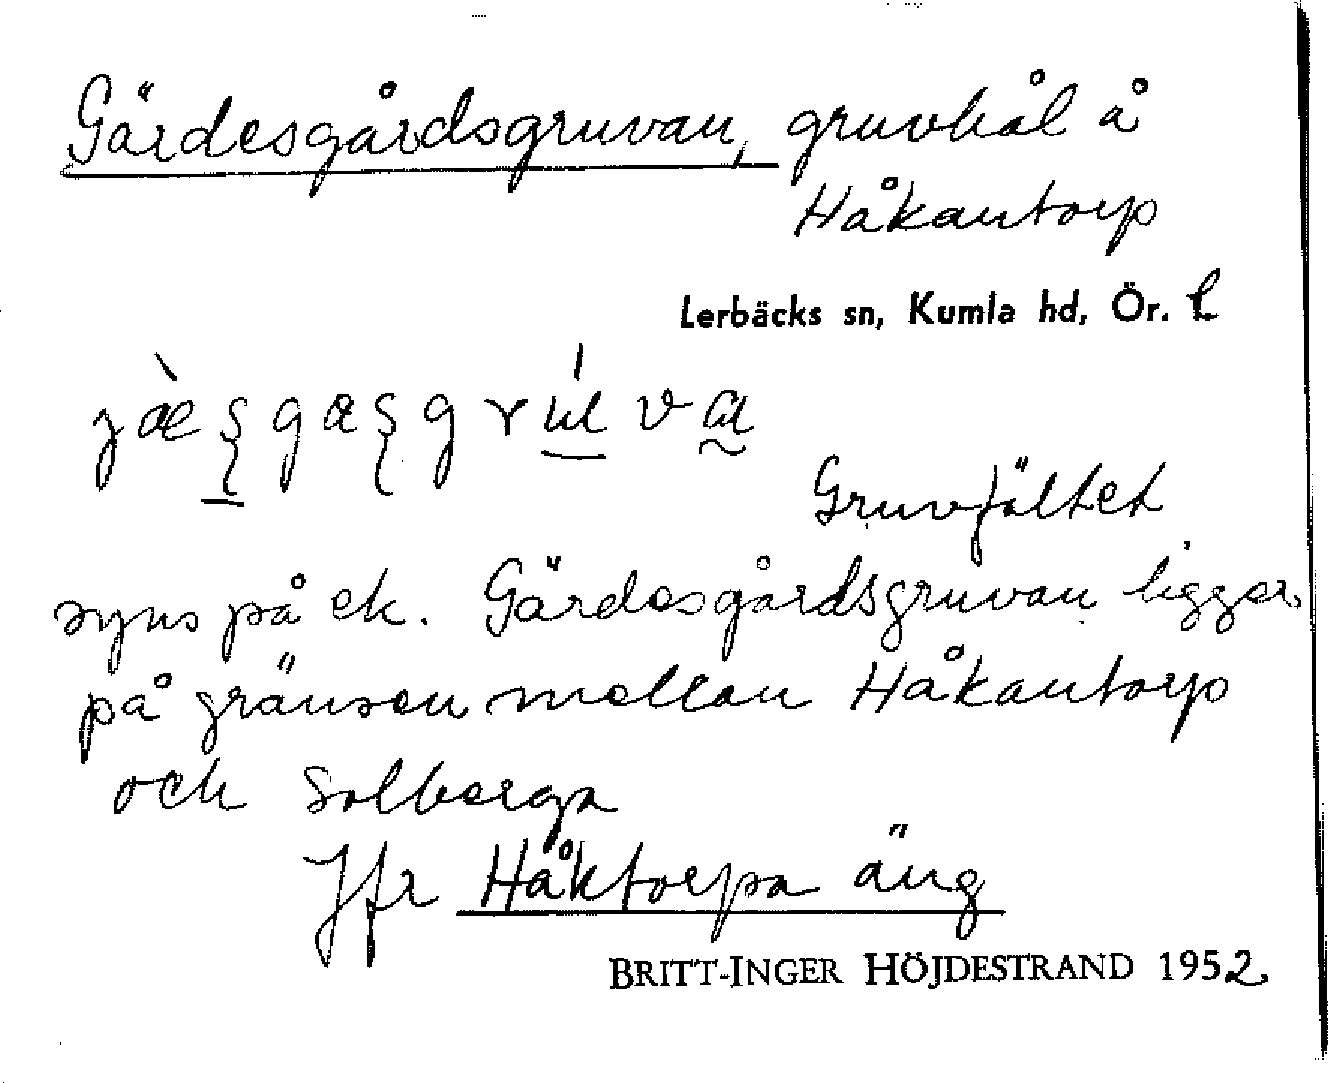 Gärdesgårdsgruvan, gruvhål å
Håkantorp
Lerbäcks sn, Kumla hd, Ör. l
Gruvfältet
syns på ek. Gärdesgårdsgruvan ligger
på gränsen mellan Håkantorp
och Solberga
Jfr Håktorpa äng
BRITT-INGER HÖJDESTRAND 1952